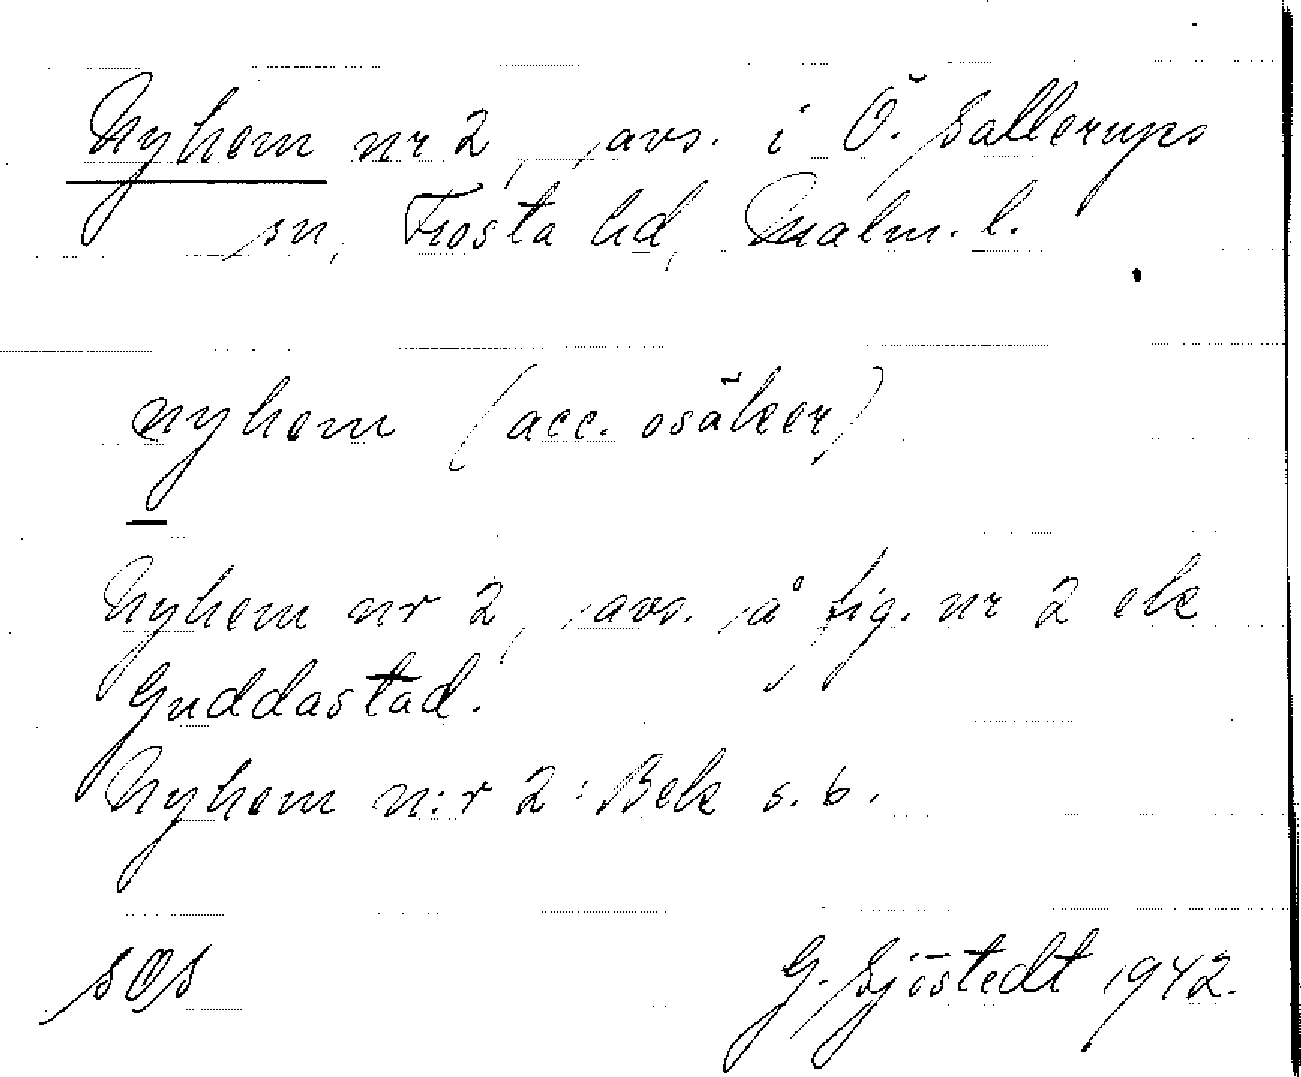 Nyhem nr 2, avs. i Ö. Sallerups
sn, Frosta hd, Malm. l.
nyhem (acc. osäker)
Nyhem nr 2, avs. å fig. nr 2 ek
Guddastad.
Nyhem n:r 2: Bek s. 6.
SOS
G. Sjöstedt 1942.